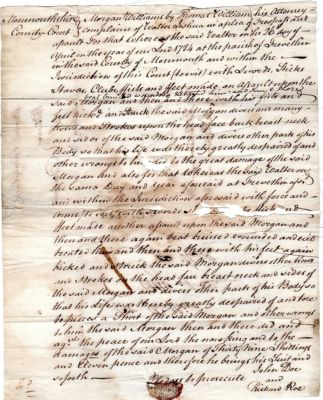 Monmouthshire Morgan Williams by Thomas Williams his Attorney
County Court complains of Walter in a plea of Trespass and
assault For that whereas the said Walter on the 26 day of
April in the year of our Lord 1784 at the parish of Trevethin
in the said County of Monmouth and within the
Jurisdiction of this Court (to wit) with Swords Sticks
Staves Clubs fists and feet made an assault upon the
said Morgan and then and there with his
feet kicked and struck the said Morgan divers and many
blows and Strokes upon the head face back breast neck
and sides of the said Morgan and divers other parts of his
Body so that his life was thereby greatly despaired of and
other wrongs to him did to the great damage of the said
Morgan And also for that whereas the said Walter on
the Same Day and Year aforesaid at Trevethin afsd
and within the Jurisdiction aforesaid with force and
arms to wit with Swords
feet made another assault upon the said Morgan and
then and there again beat bruised wounded and evil
treated him and then and there with his feet again
kicked and struck the said Morgan divers other blows
and Strokes on the head face breast neck and sides of
the said Morgan and divers other parts of his Body so
that his Life was thereby greatly despaired of and tore
to pieces a Shirt of the said Morgan and other wrongs
to him the said Morgan then and there did and
agst the peace of our Lord the now King and to the
damages of the said Morgan of Thirty Nine Shillings
and Eleven pence and therefore he brings his Suit and
so forth
Pledges to prosecute
John Doe
and
Richard Roe